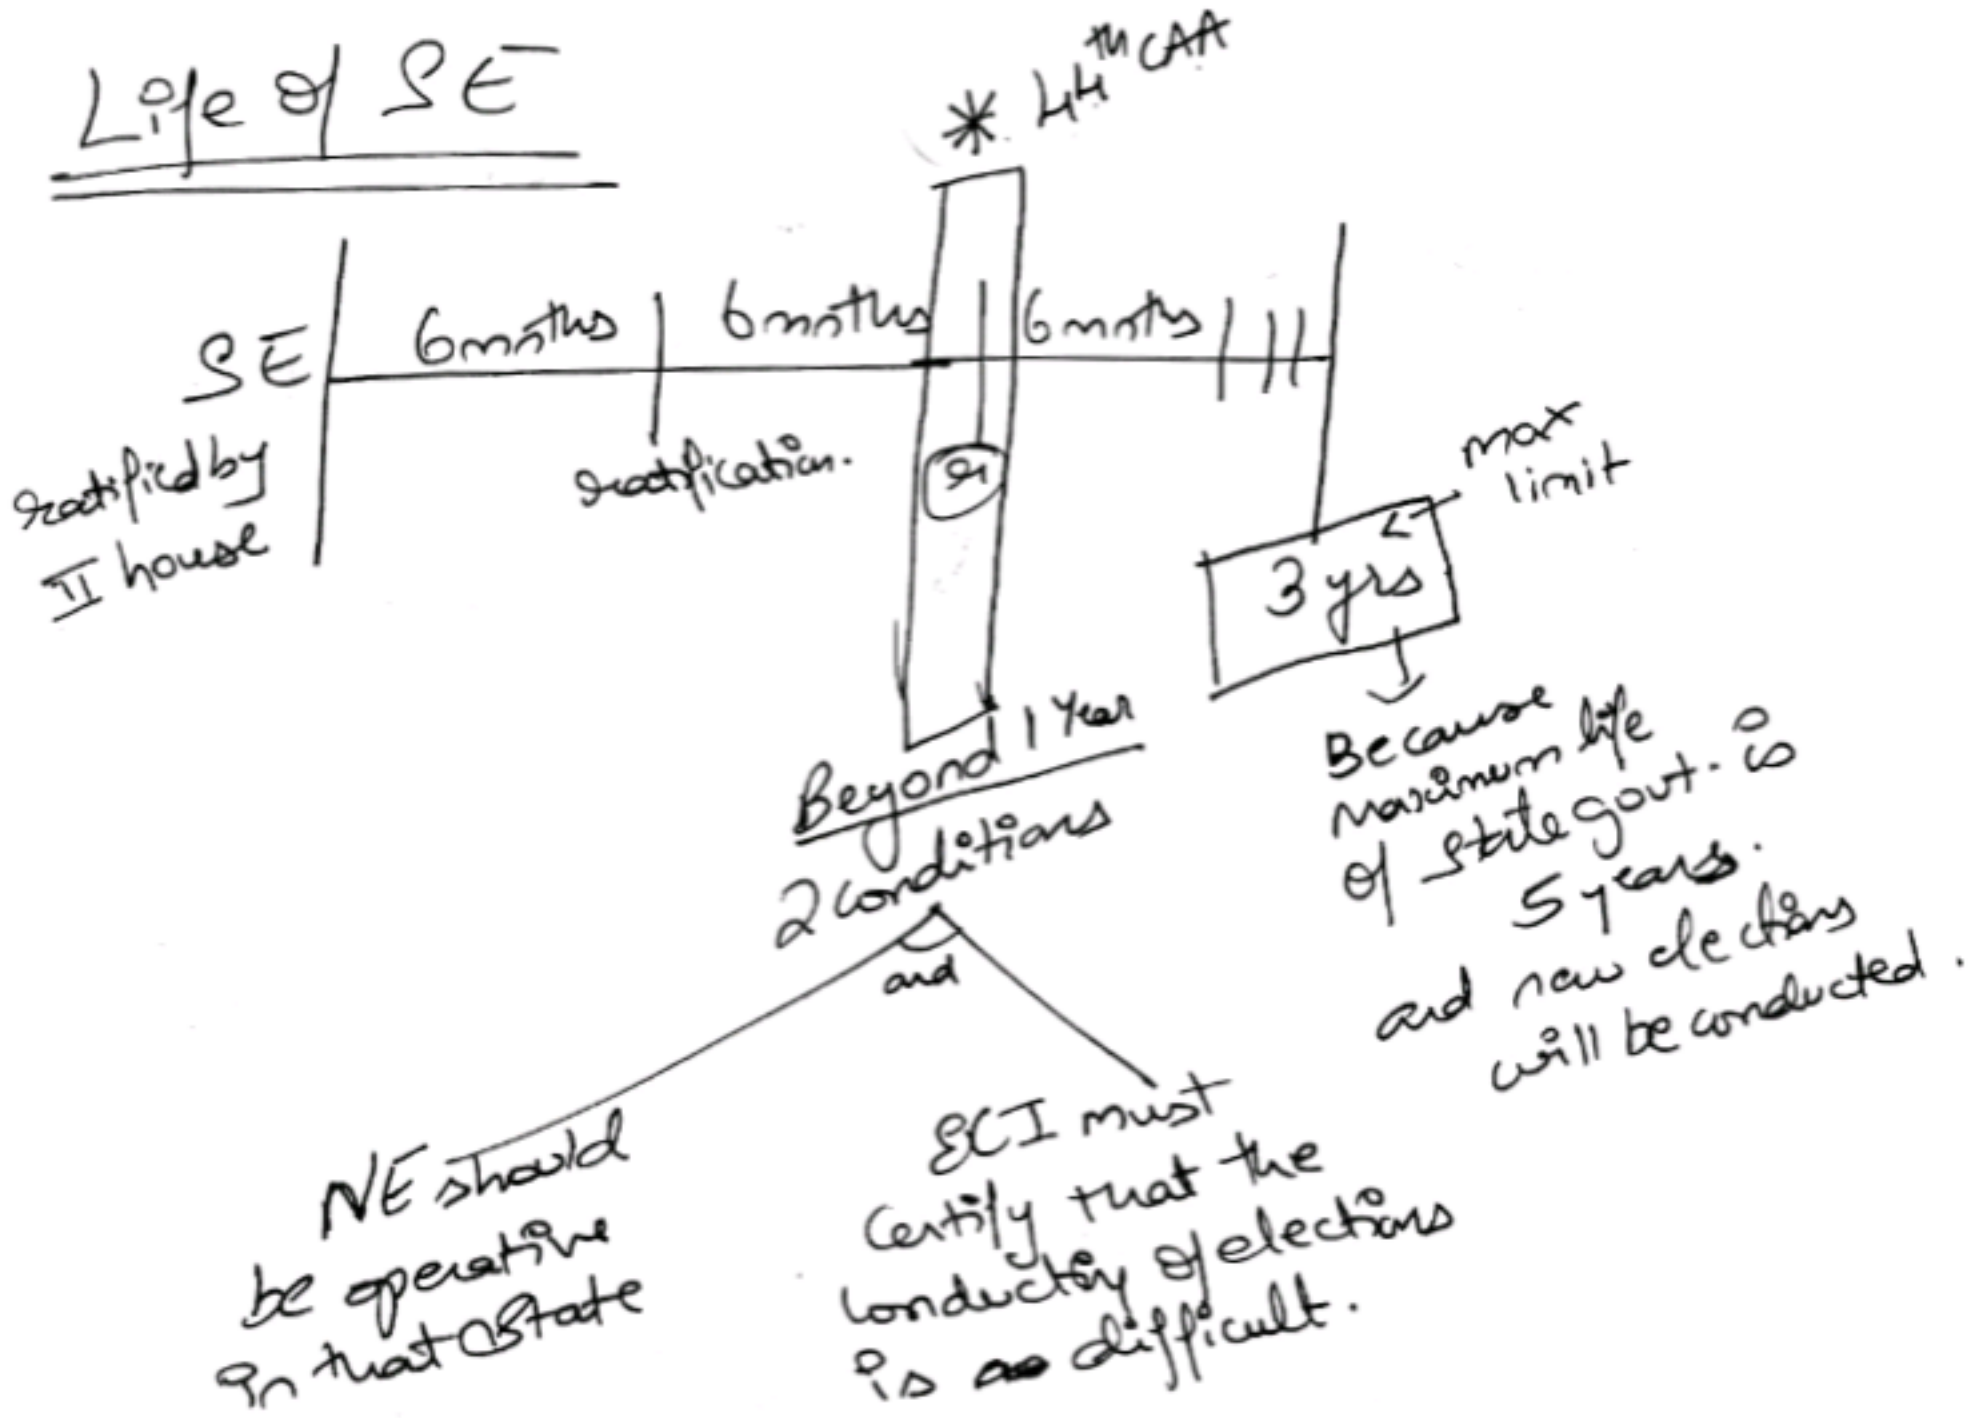 Life of SE
* 44th CAA
SE
6 months
6 months
6 months
ratified by
II house
ratification.
r
max
limit
3 yrs
Because
maximum life
of state govt. is
5 years.
and new elections
will be conducted.
Beyond 1 Year
2 conditions
and
NE should
be operative
in that State
ECI must
Certify that the
conducting of elections
is difficult.